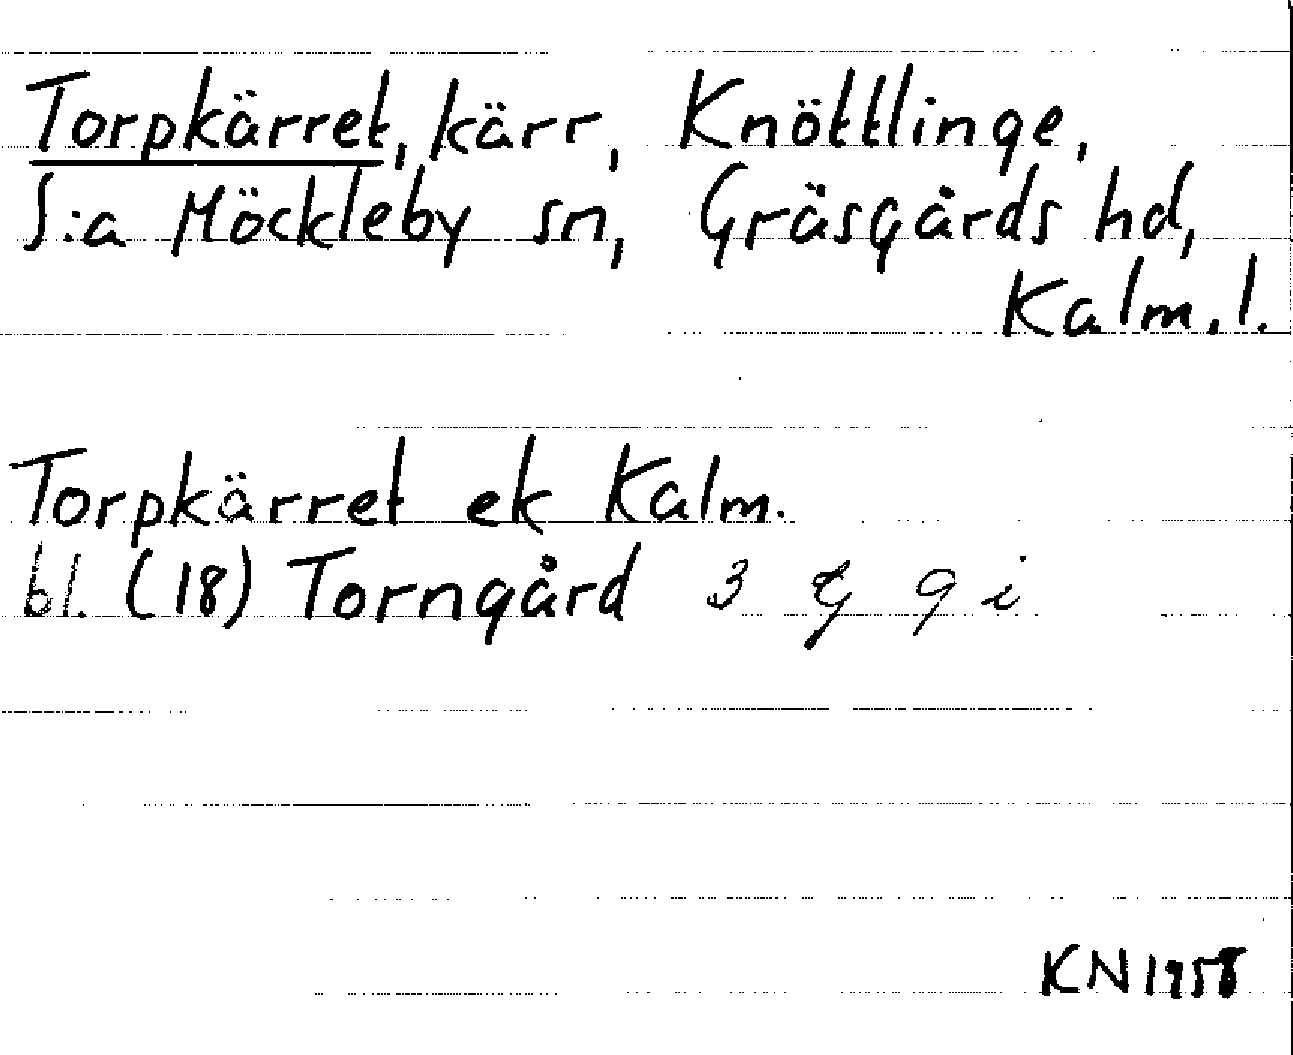 Torpkärret, kärr, Knöttlinge,
S:a Möckleby sn, Gräsgårds hd,
Kalm. l.
Torpkärret ek Kalm.
bl. (18) Torngård 3 G 9 i
KN 1958